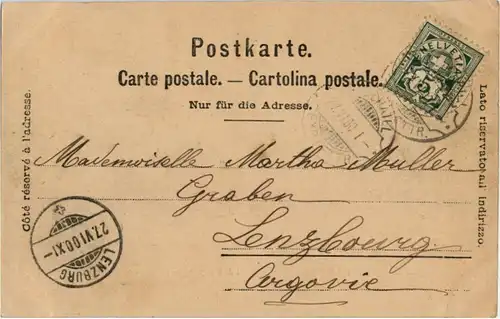 Postkarte.
Carte postale. — Cartolina postale.
Nur für die Adresse.
Côté réservé à l'adresse.
Lato riservato all indirizzo.
HELVETIA
5
Mademoiselle Martha Müller
Graben
Lenzbourg
Argovie
27.VI.00.XI-
LENZBURG